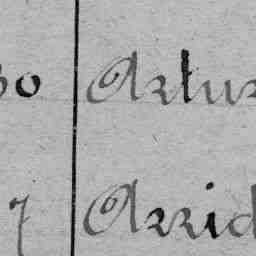 30 Artur
7 Arrid